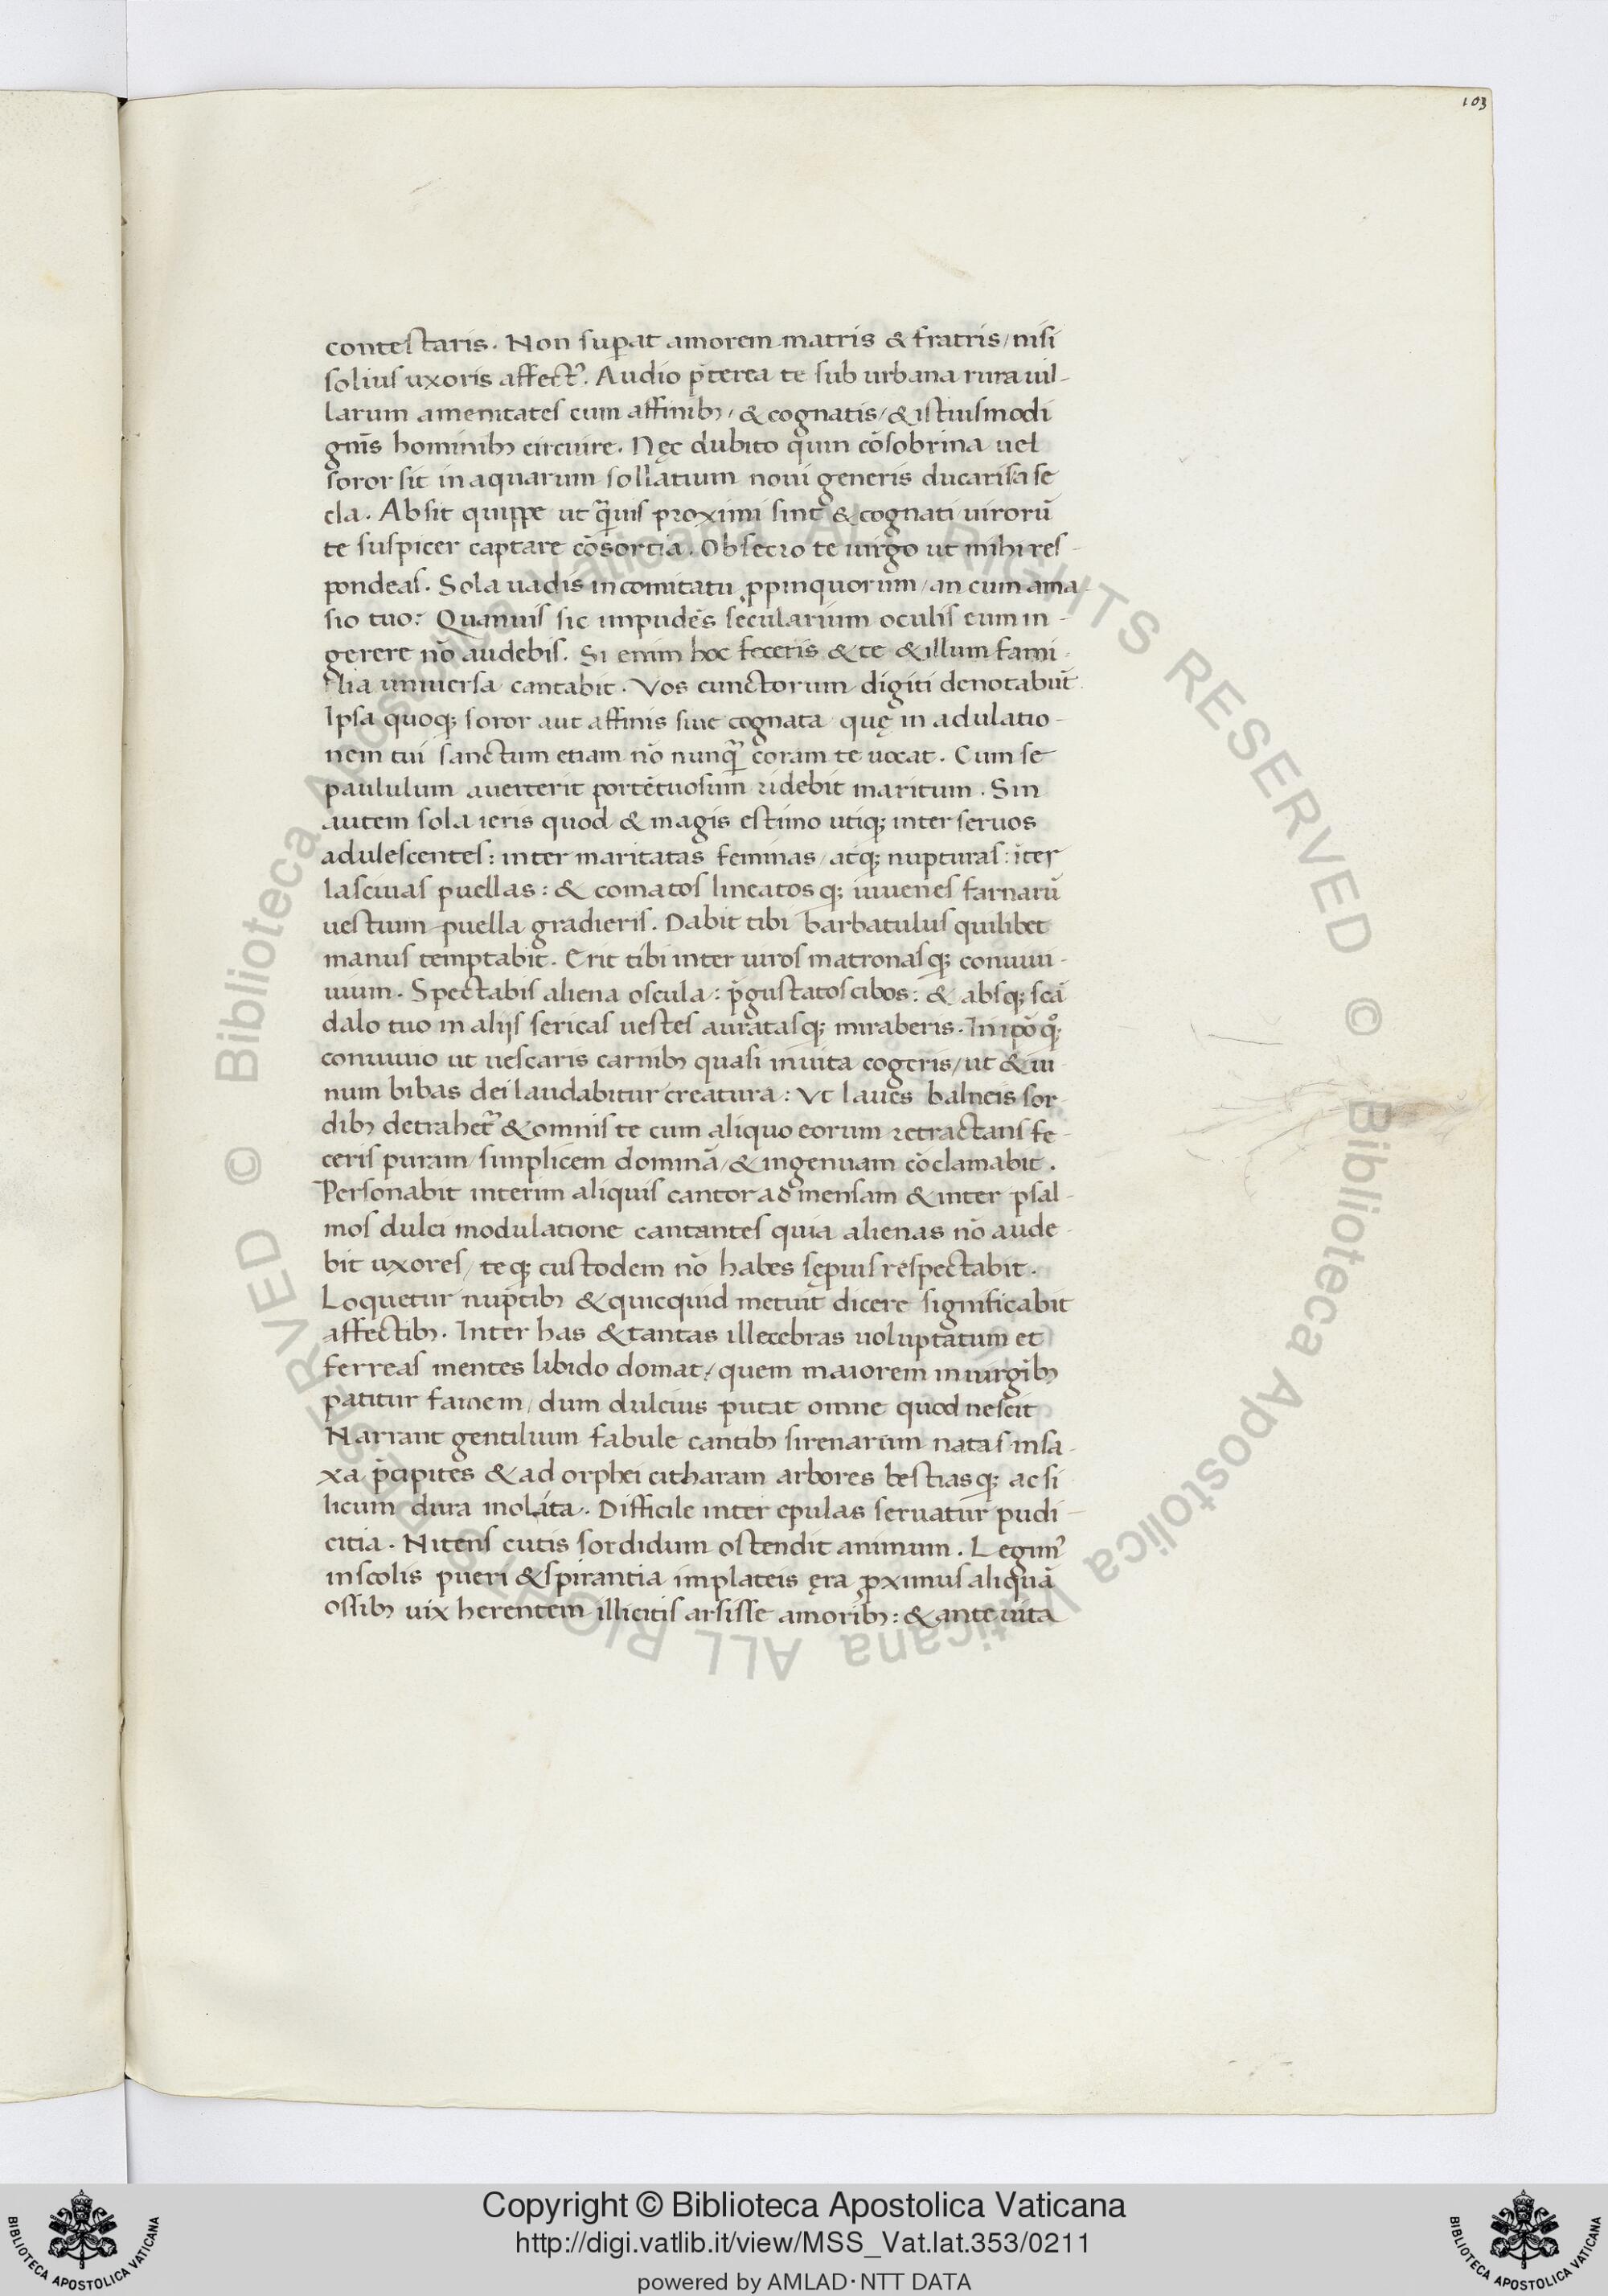 103
contestaris. Non sup̄at amorem matris & fratris/nisi
solius uxoris affect᷒. Audio p̄terea te sub urbana rura uil-
larum amenitates cum affinib; / & cognatis / & istiusmodi
gn̄is hominib; circuire. Nęc dubito quin cōsobrina uel
soror sit in aquarum sollatium noui generis ducaris a se
cla. Absit quippe ut q̄uis proximi sint & cognati uirorū
te suspicer captare cōsortia. Obsecro te uirgo ut mihi res-
pondeas. Sola uadis in comitatu ꝓpinquorum / an cum ama-
sio tuo? Quamuis sic impudēs secularium oculis eum in-
gerere nō audebis. Si enim hoc feceris & te & illum fami-
lia uniuersa cantabit. Vos cunctorum digiti denotabūt
Ipsa quoq; soror aut affinis siue cognata quę in adulatio-
nem tui sanctum etiam nō nunq̄ coram te uocat. Cum se
paululum auerterit portētuosum ridebit maritum. Sin
autem sola ieris quod & magis estimo utiq; inter seruos
adulescentes: inter maritatas feminas / atq; nupturas: īter
lasciuas puellas: & comatos lineatosq; iuuenes farnarū
uestium puella gradieris. Dabit tibi barbatulus quilibet
manus temptabit. Erit tibi inter uiros matronasq; conuiui-
uium. Spectabis aliena oscula: p̄gustatos cibos: & absq; scā
dalo tuo in alijs sericas uestes auratasq; miraberis. In ip̄o q̊;
conuiuio ut uescaris carnib; quasi inuita cogeris / ut & ui-
num bibas dei laudabitur creatura: Vt laues balneis sor-
dib; detrahet᷑ & omnis te cum aliquo eorum retractans fe-
ceris puram / simplicem dominā / & ingenuam cōclamabit.
Personabit interim aliquis cantor ad mensam & inter psal-
mos dulci modulatione cantantes quia alienas nō aude-
bit uxores / teq; custodem nō habes sępius respectabit.
Loquetur nuptib; & quicquid metuit dicere significabit
affectib;. Inter has & tantas illecebras uoluptatum et
ferreas mentes libido domat / quem maiorem in uirgib;
patitur famem / dum dulcius putat omne quod nescit
Narrant gentilium fabule cantib; sirenarum natas in sa-
xa p̄cipites & ad orphei citharam arbores bestiasq; ac si
licum dura molita. Difficile inter epulas seruatur pudi-
citia. Nitens cutis sordidum ostendit animum. Legim᷒
in scolis pueri & spirantia in plateis ęra ꝓximus aliquā
ossib; uix herentem illicitis arsisse amorib;: & ante uita
© Biblioteca Apostolica Vaticana ALL RIGHTS RESERVED © Biblioteca Apostolica Vaticana ALL RIGHTS RESERVED
Copyright © Biblioteca Apostolica Vaticana
http://digi.vatlib.it/view/MSS_Vat.lat.353/0211
powered by AMLAD·NTT DATA
BIBLIOTECA APOSTOLICA VATICANA
BIBLIOTECA APOSTOLICA VATICANA